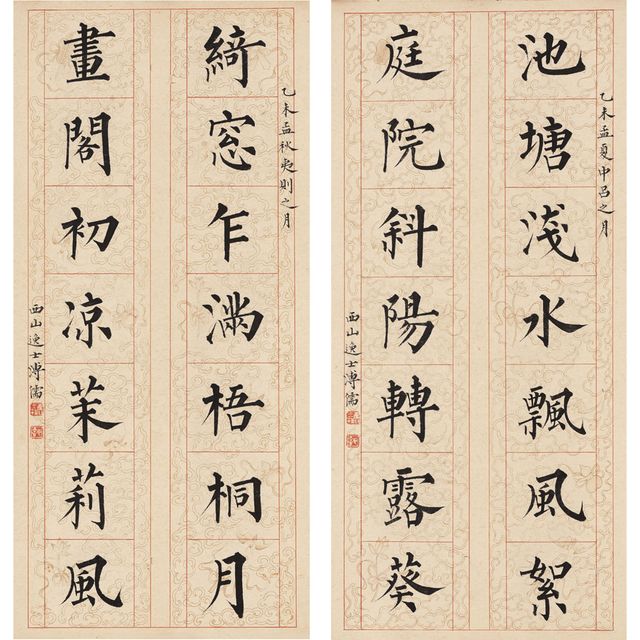 乙未孟夏中呂之月
池塘淺水飄風絮
庭院斜陽轉露葵
西山逸士溥儒
乙未孟秋夷則之月
綺窓乍滿梧桐月
畫閣初凉茉莉風
西山逸士溥儒